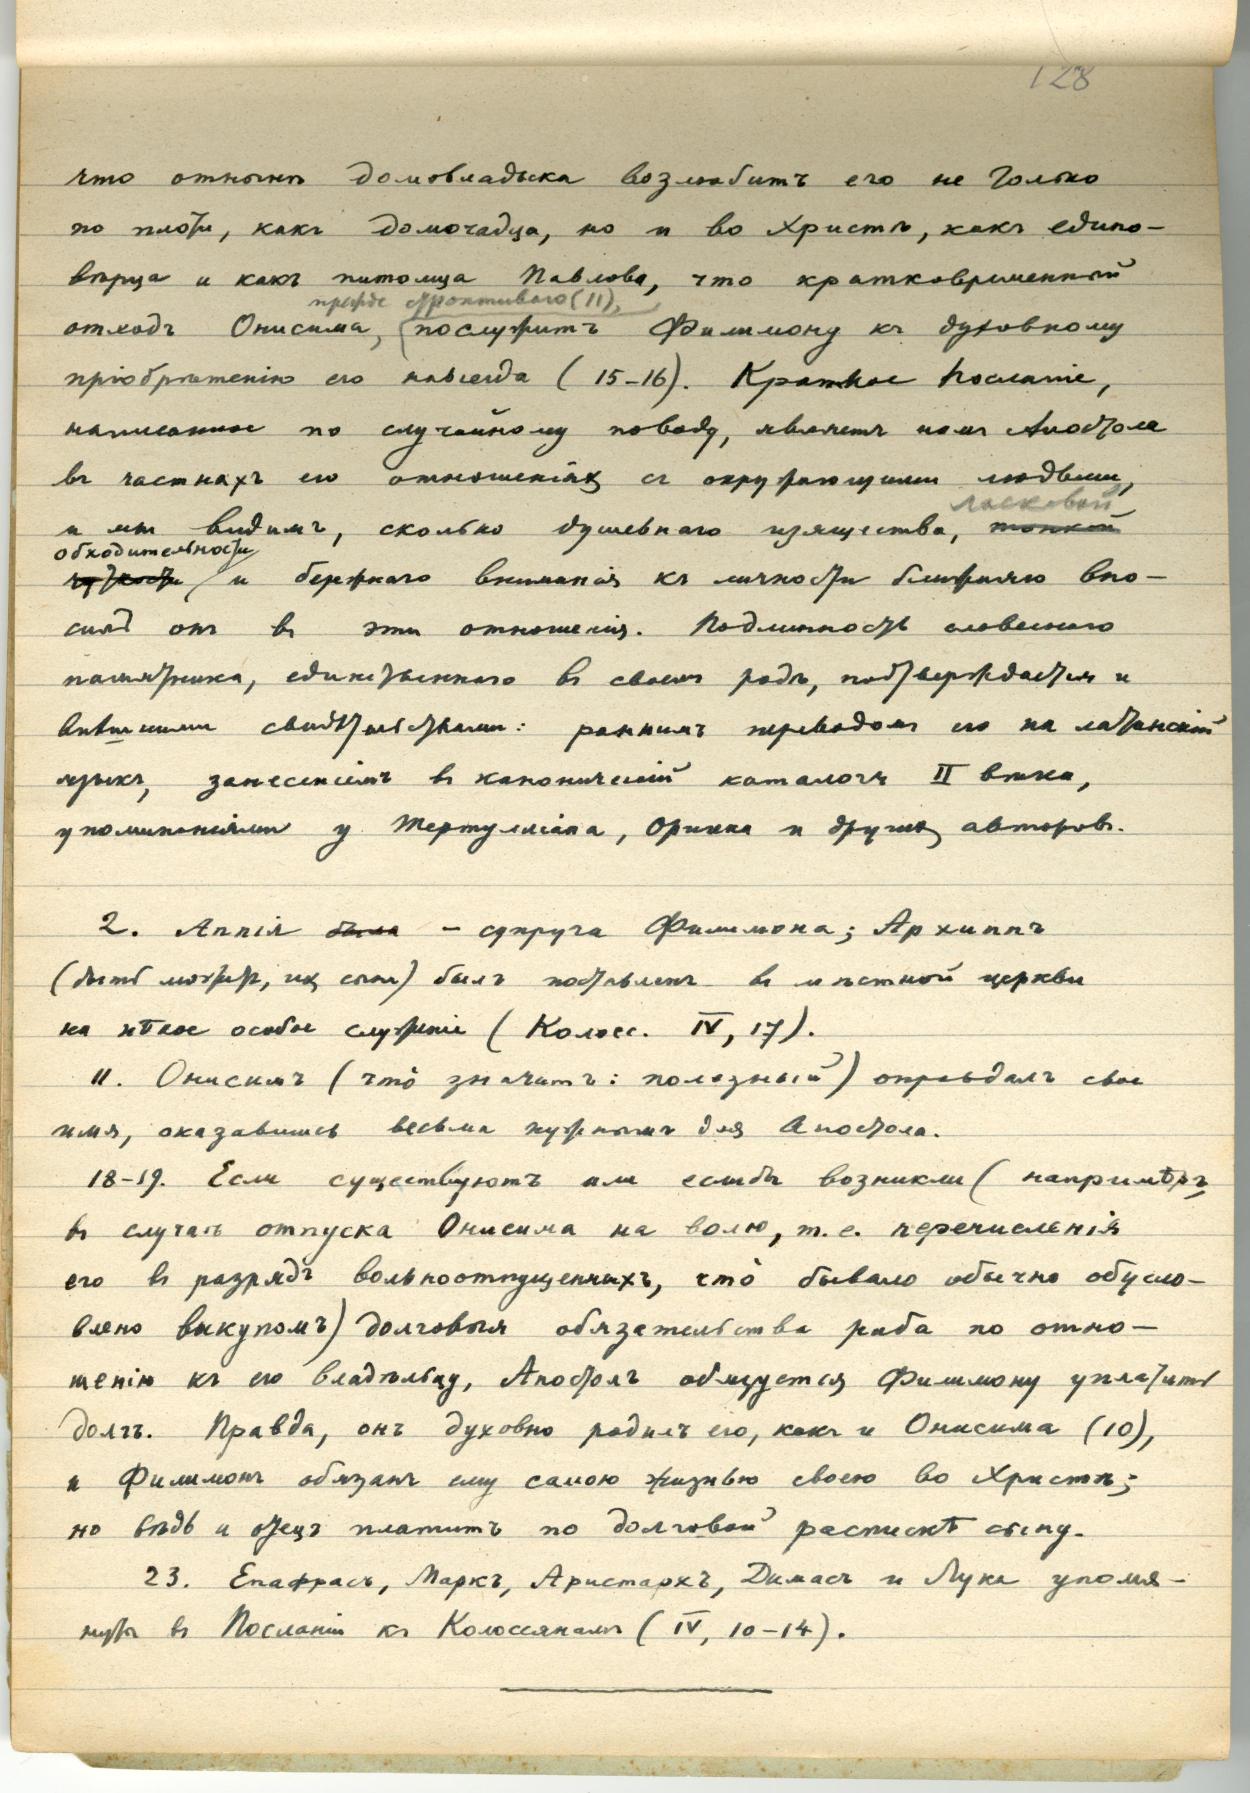 128
что отнынѣ домовладыка возлюбитъ его не только
по плоти, какъ домочадца, но и во Христѣ, какъ едино-
вѣрца и какъ питомца Павлова, что кратковременный
прежде строптиваго (11),
отходъ Онисима, послужитъ Филимону къ духовному
пріобрѣтенію его навсегда (15-16). Краткое Посланіе,
написанное по случайному поводу, являетъ намъ Апостола
въ частныхъ его отношеніяхъ съ окружающими людьми,
ласковой
и мы видимъ, сколько душевнаго изящества, тонкой
обходительности
чуткости и бережнаго вниманія къ личности ближняго вно-
силъ онъ въ эти отношенія. Подлинность словеснаго
памятника, единственнаго въ своемъ родѣ, подтверждается и
внѣшними свидѣтельствами: раннимъ переводомъ его на латинскій
языкъ, занесеніемъ въ каноническій каталогъ II вѣка,
упоминаніями у Тертулліана, Оригена и другихъ авторовъ.
2. Аппія была – супруга Филимона; Архиппъ
(быть можетъ, ихъ сынъ) былъ поставленъ въ мѣстной церкви
на нѣкое особое служеніе (Колосс. IV, 17).
11. Онисимъ (что̀ значитъ: полезный) оправдалъ свое
имя, оказавшись весьма нужнымъ для Апостола.
18-19. Если существуютъ или еслибы возникли (напримѣръ,
въ случаѣ отпуска Онисима на волю, т.е. перечисленія
его въ разрядъ вольноотпущенныхъ, что̀ бывало обычно обусло-
влено выкупомъ) долговыя обязательства раба по отно-
шенію къ его владѣльцу, Апостолъ обязуется Филимону уплатить
долгъ. Правда, онъ духовно родилъ его, какъ и Онисима (10),
и Филимонъ обязанъ ему самою жизнью своею во Христѣ;
но вѣдь и отецъ платитъ по долговой распискѣ сыну.
23. Епафрасъ, Маркъ, Аристархъ, Димасъ и Лука упомя-
нуты въ Посланіи къ Колоссянамъ (IV, 10-14).